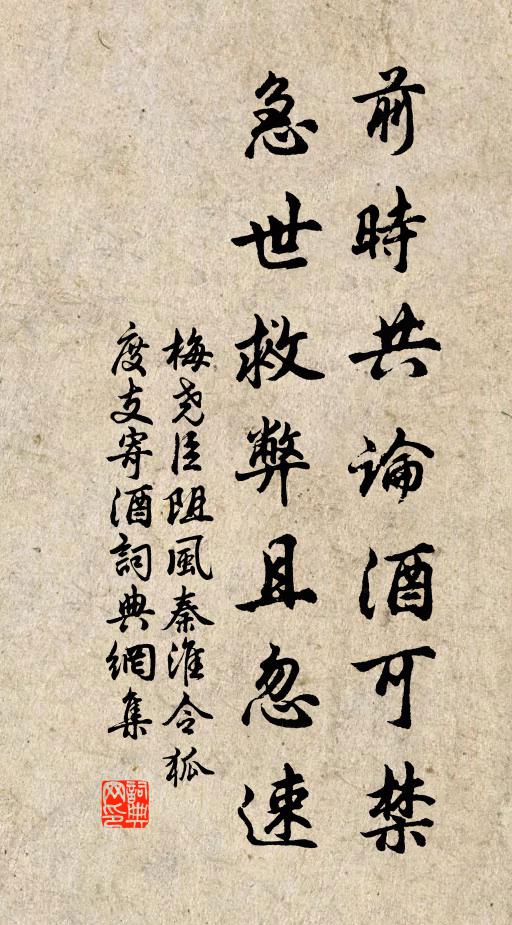 前時共論酒可禁
急世救弊且忽速
梅堯臣阻風秦淮令狐
度支寄酒詞典網集
詞典
网印